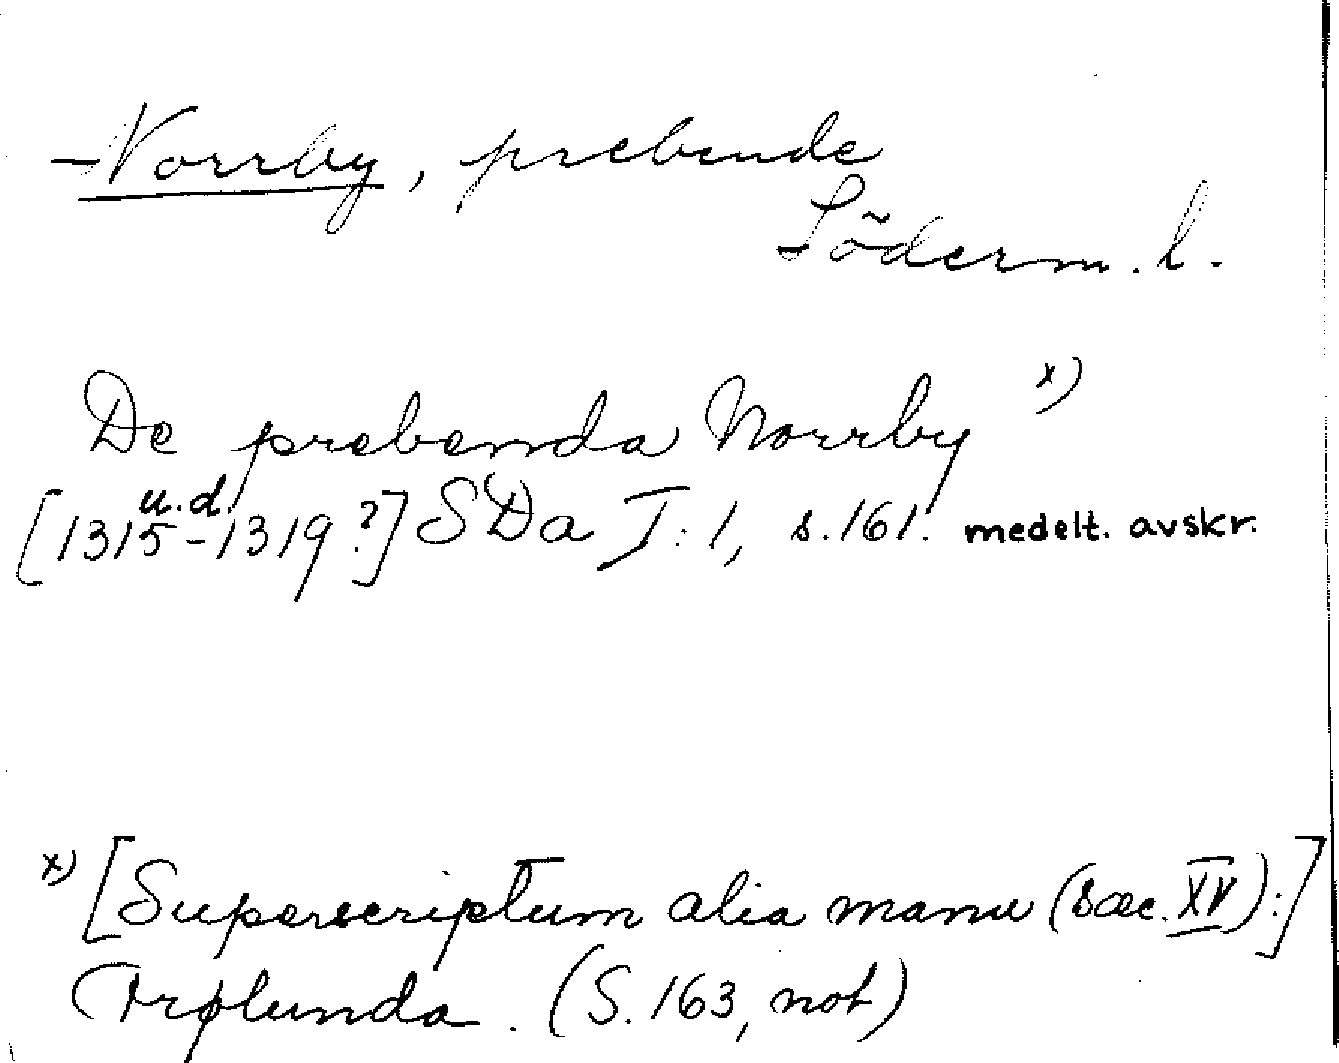 -Norrby, prebende
Söderm. l.
De prebenda Norrby x)
u.d.
[1315-1319?] SDa I:1, s.161. medelt. avskr.
x) [Superscriptum alia manu (sæc. XV):]
(S. 163, not)